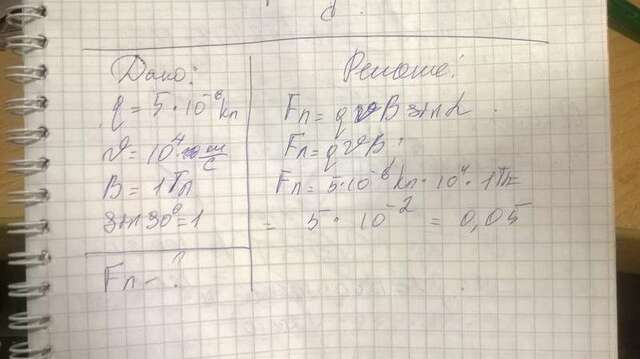 Дано:
q = 5 · 10⁻⁶ Кл
υ = 10⁴ м/с
B = 1 Тл
sin 90° = 1
Fл - ?
Решение:
Fл = qυB sin α.
Fл = qυB;
Fл = 5·10⁻⁶ Кл · 10⁴ · 1 Тл
= 5 · 10⁻² = 0,05